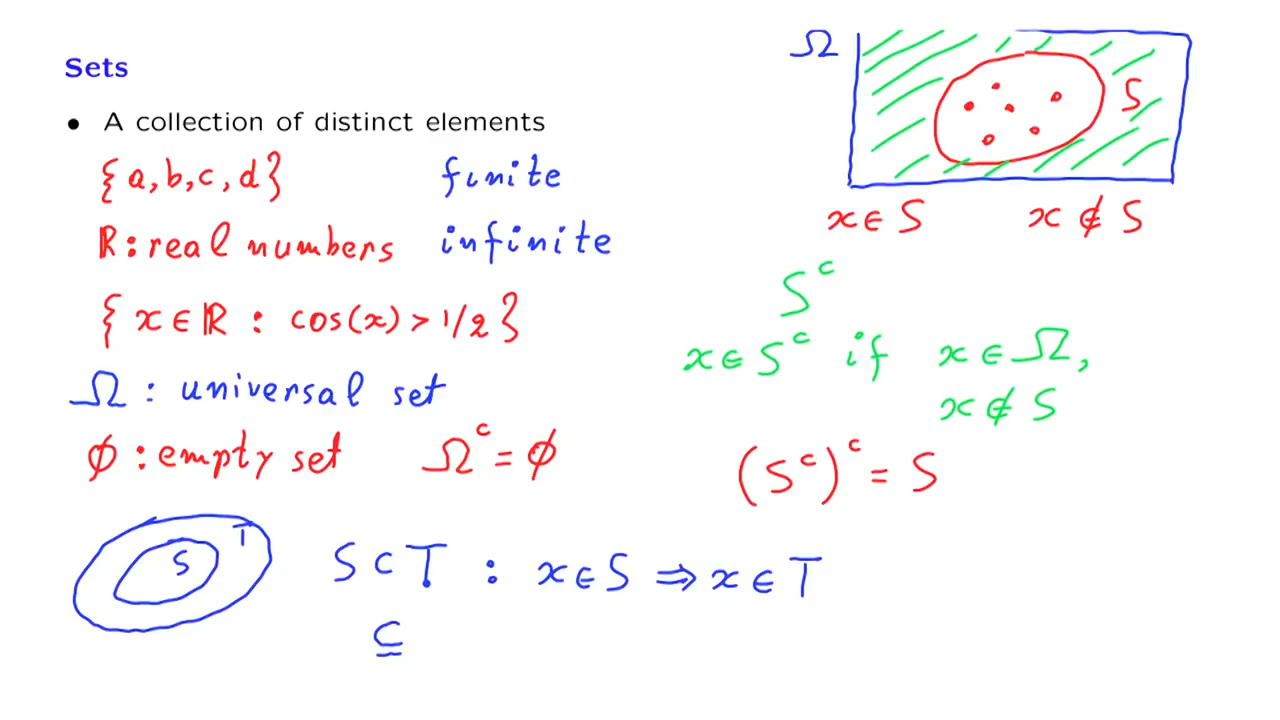 Sets
• A collection of distinct elements
{a, b, c, d} finite
ℝ: real numbers infinite
{ x ∈ ℝ : cos(x) > 1/2 }
Ω : universal set
Ø : empty set Ωᶜ = Ø
S T
S ⊂ T : x ∈ S ⇒ x ∈ T
⊆
Ω
S
x ∈ S x ∉ S
Sᶜ
x ∈ Sᶜ if x ∈ Ω,
x ∉ S
(Sᶜ)ᶜ = S